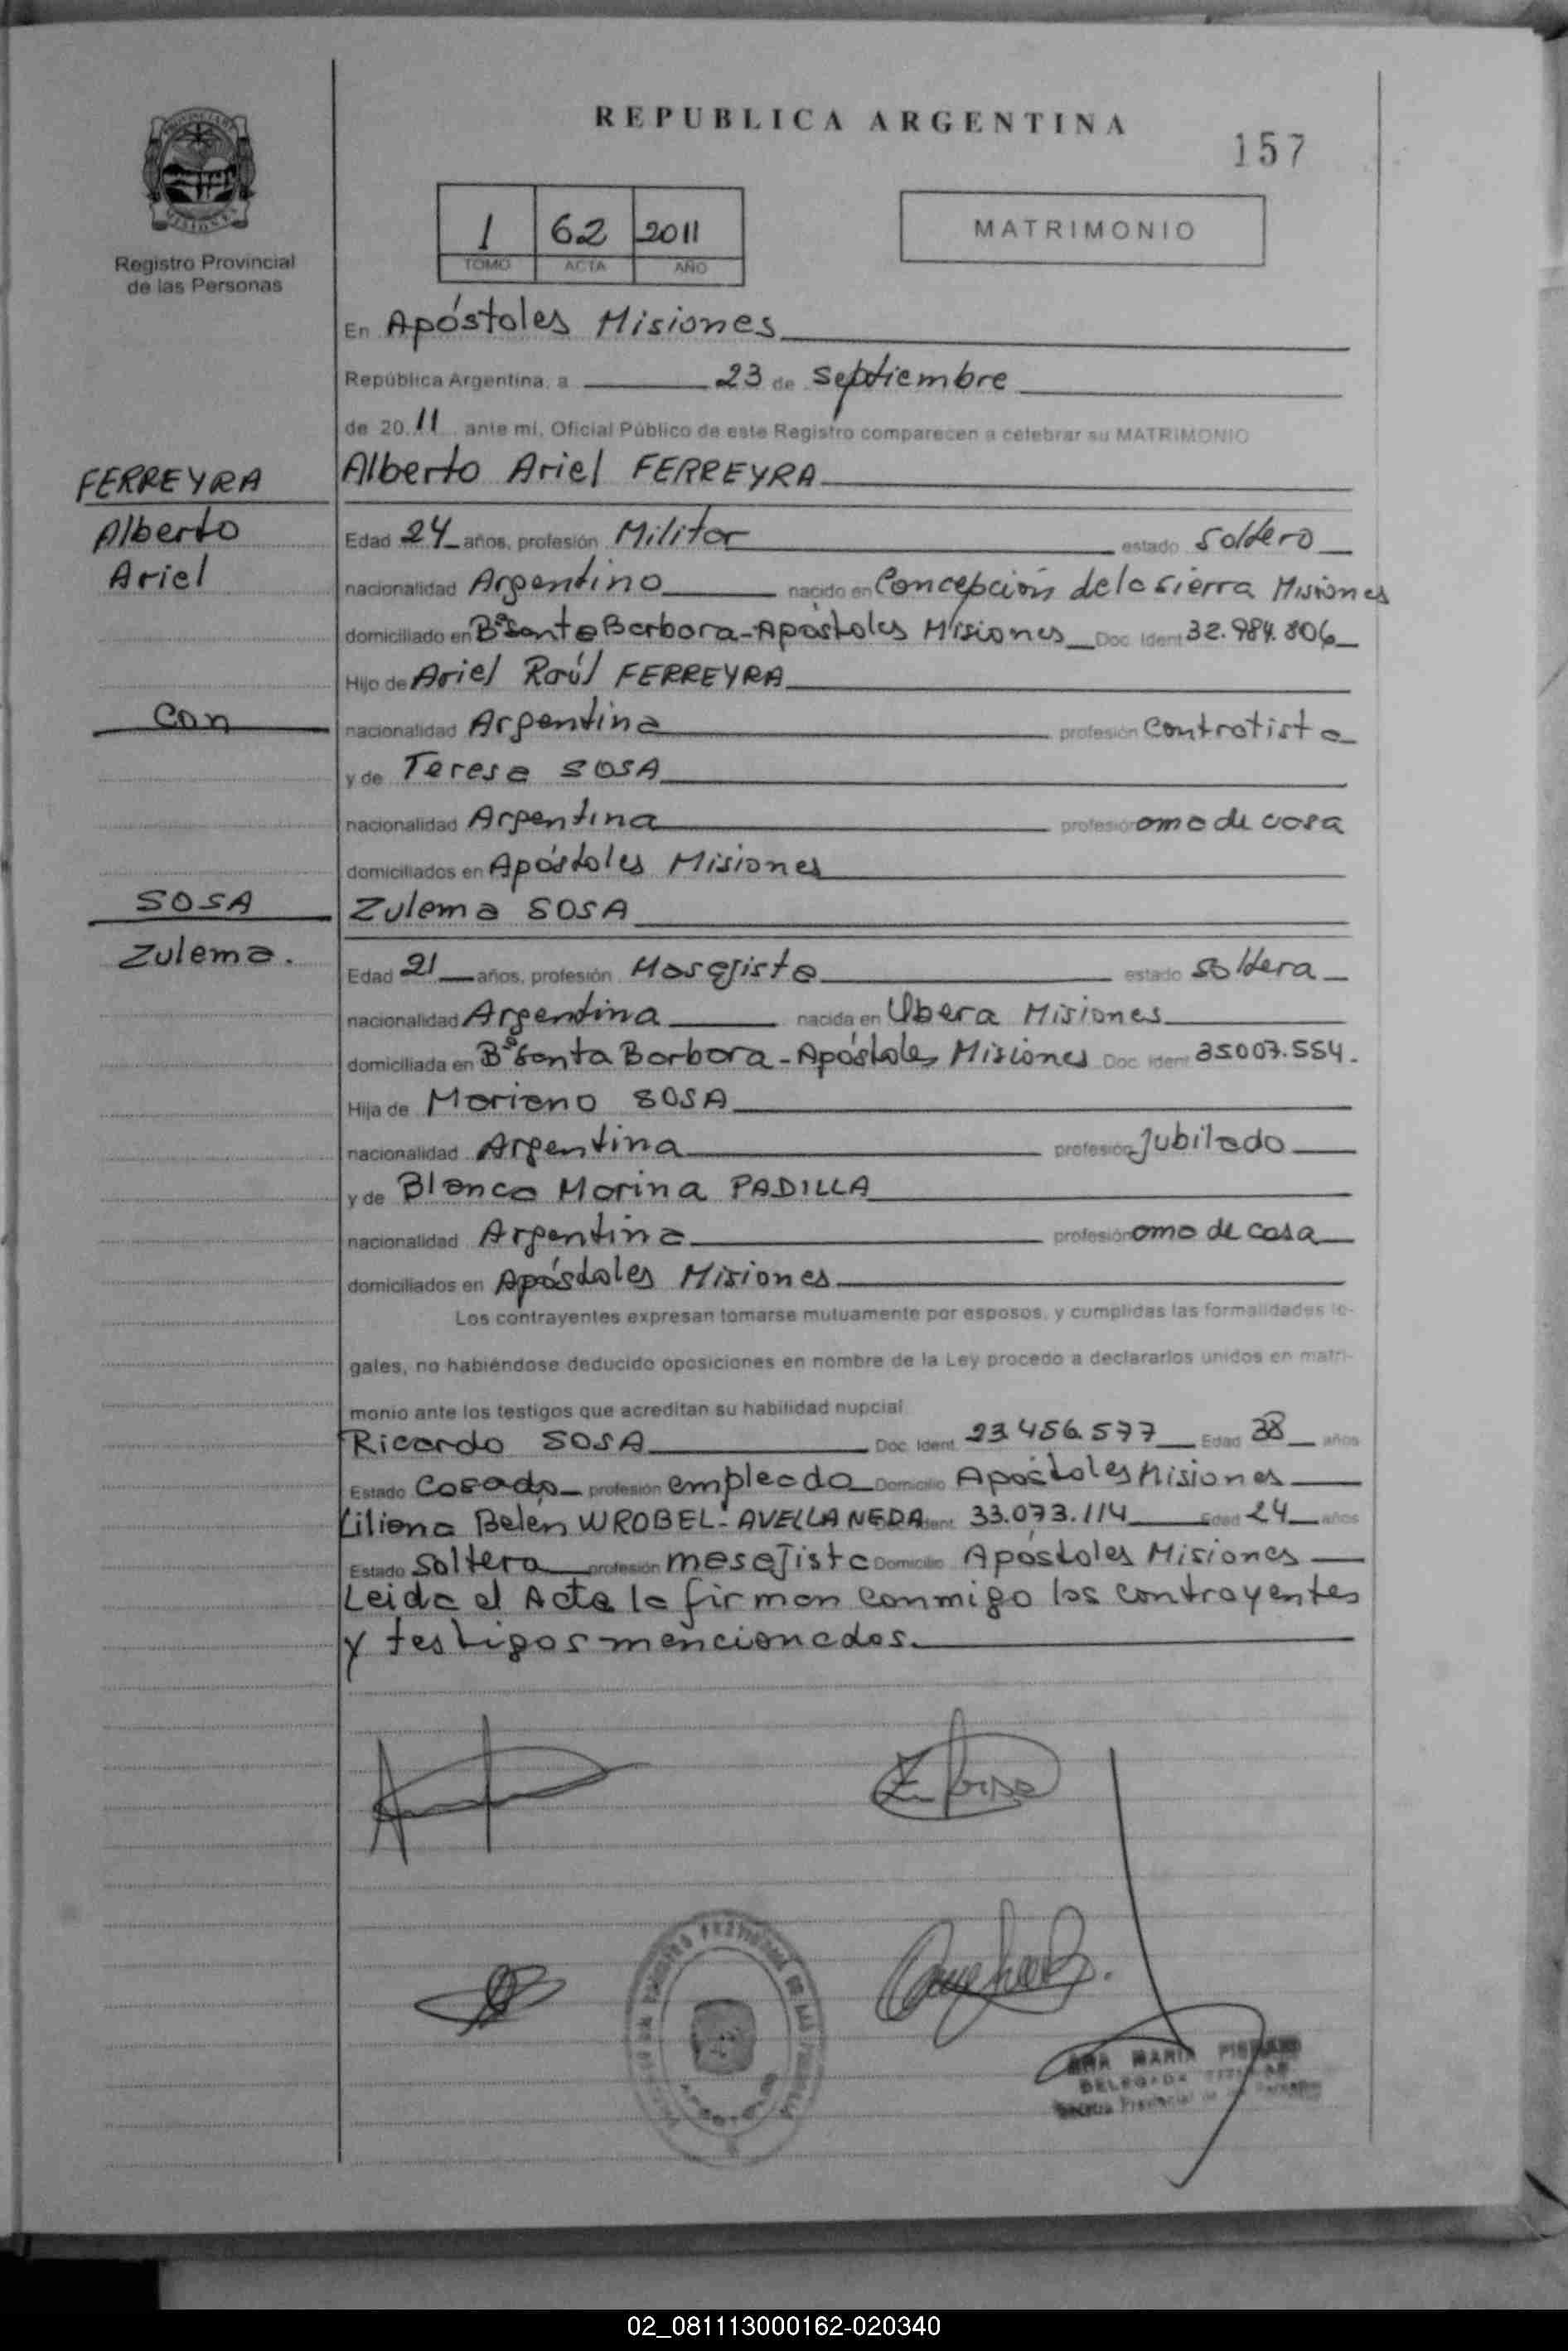 REPUBLICA ARGENTINA
157
1 62 2011
TOMO ACTA AÑO
MATRIMONIO
Registro Provincial
de las Personas
En Apóstoles Misiones
República Argentina, a 23 de septiembre
de 2011 ante mí, Oficial Público de este Registro comparecen a celebrar su MATRIMONIO
FERREYRA
Alberto
Ariel
Con
SOSA
Zulema.
Alberto Ariel FERREYRA
Edad 24 años, profesión Militar estado soltero
nacionalidad Argentino nacido en Concepción de la sierra Misiones
domiciliado en B° Santa Barbara - Apóstoles Misiones Doc. Ident 32.984.806
Hijo de Ariel Raúl FERREYRA
nacionalidad Argentina profesión Contratista
y de Teresa SOSA
nacionalidad Argentina profesión ama de casa
domiciliados en Apóstoles Misiones
Zulema SOSA
Edad 21 años, profesión Masajista estado soltera
nacionalidad Argentina nacida en Obera Misiones
domiciliada en B° Santa Barbara - Apóstoles Misiones Doc. Ident 35007.554.
Hija de Mariano SOSA
nacionalidad Argentina profesión Jubilado
y de Blanca Marina PADILLA
nacionalidad Argentina profesión ama de casa
domiciliados en Apóstoles Misiones
Los contrayentes expresan tomarse mutuamente por esposos, y cumplidas las formalidades le-
gales, no habiéndose deducido oposiciones en nombre de la Ley procedo a declararlos unidos en matri-
monio ante los testigos que acreditan su habilidad nupcial
Ricardo SOSA Doc. Ident. 23.456.577 Edad 38 años
Estado Casado profesión empleado Domicilio Apostoles Misiones
Liliana Belen WROBEL - AVELLANEDA Ident. 33.073.114 Edad 24 años
Estado soltera profesión masajista Domicilio Apóstoles Misiones
Leida el Acta la firman conmigo los contrayentes
y testigos mencionados.
Z. Sosa
ANA MARIA
DELEGADA TITULAR
Registro Provincial de las Personas
02_081113000162-020340